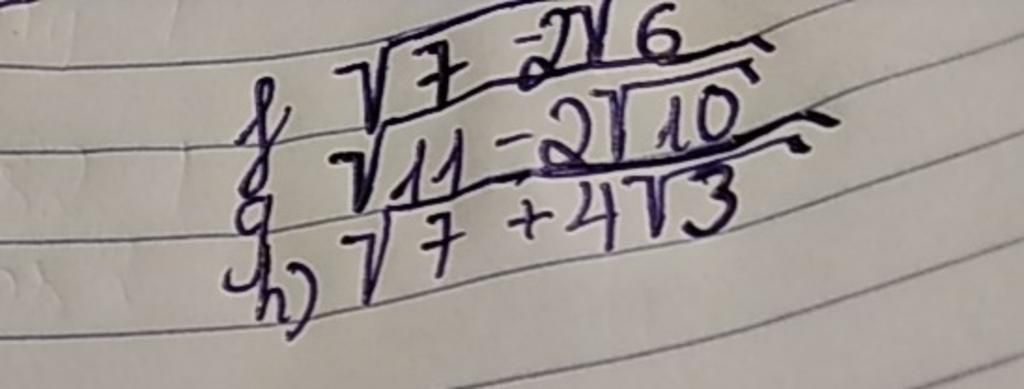 f √7 - 2√6
g √11 - 2√10
h) √7 + 4√3